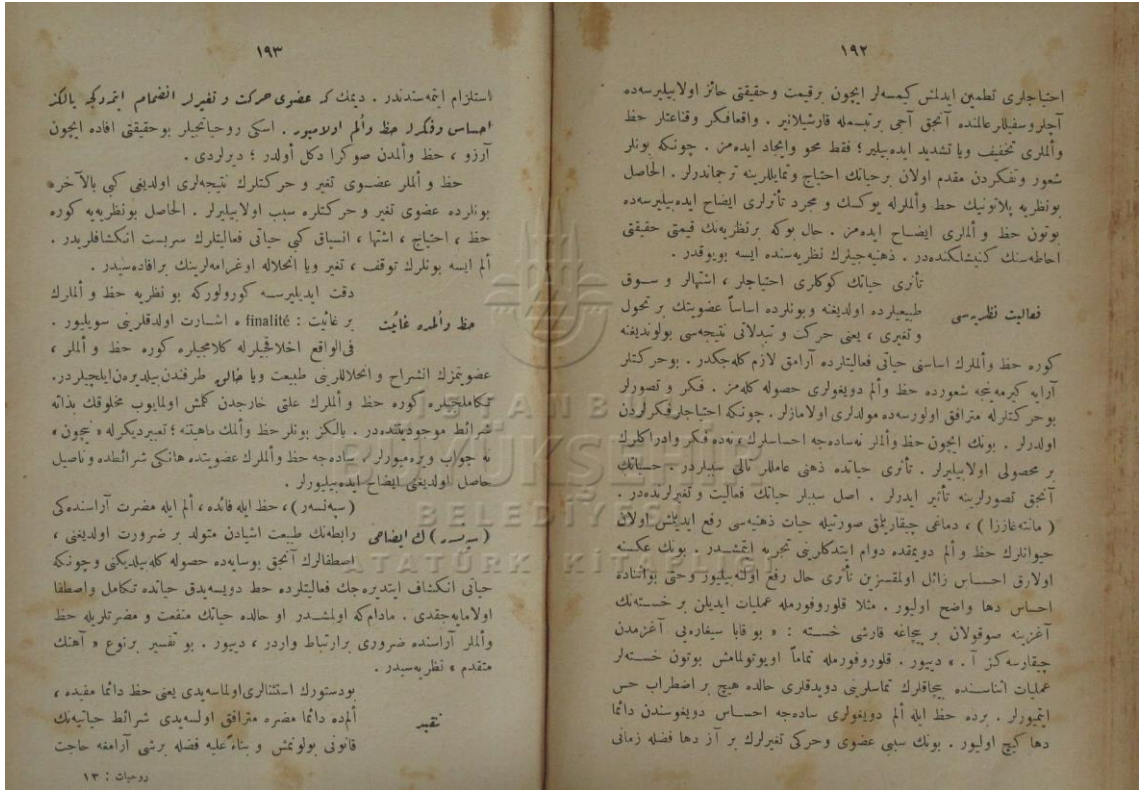 ١٩٢
احتياجلری تطمين ايدلمش كيمسه‌لر ايچون برقيمت وحقيقتی حائز اولابيليرسه‌ده
آچلروسفيللرعالمنده آنجق آجی برتبسمله قارشيلانير . واقعافكر وقناعتلر حظ
وألملری تخفيف ويا تشديد ايده‌بيلير ؛ فقط محو وايجاد ايده‌مز . چونكه بونلر
شعور وتفكردن مقدم اولان برحياتك احتياج وتمايللرينه ترجماندرلر . الحاصل
بونظريه پلاتونيك حظ وألملرله يوكسك و مجرد تأثرلری ايضاح ايده‌بيليرسه‌ده
بوتون حظ و ألملری ايضــاح ايده‌مز . حال بوكه برنظريه‌نك قيمتی حقيقتی
احاطه‌سنك كنيشلكنده‌در . ذهنيه‌جيلرك نظريه‌سنده ايسه بويوقدر .
فعاليت نظريه‌سی
تأثری حياتك كوكلری احتياجلر ، اشتهالر و ســوق
طبيعيلرده اولديغنه وبونلرده اساساً عضويتك بر تحول
و تغيری ، يعنی حركت و تبدلاتی نتيجه‌سی بولونديغنه
كوره حظ وألملرك اساسنی حياتی فعاليتلرده آرامق لازم كله‌جكدر . بوحركتلر
آرايه كيرمه‌ينجه شعورده حظ وألم دويغولری حصوله كله‌مز . فكر و تصورلر
بوحركتلرله مترافق اولورسه‌ده مولدلری اولامازلر . چونكه احتياجلرفكرلردن
اولدرلر . بونك ايچون حظ وألملر نه‌ساده‌جه احساسلرك ، نه‌ده فكر وادراكلرك
بر محصولی اولابيليرلر . تأثری حياتده ذهنی عاملر تالی سببلردر . حسياتك
آنجق تصورلرينه تأثير ايدرلر . اصل سببلر حياتك فعاليت و تغيرلرنده‌در .
( مانته‌غاززا ) ، دماغی چيقاريلمق صورتيله حيات ذهنيه‌سی رفع ايديلمش اولان
حيوانلرك حظ و ألم دويمقده دوام ايتدكلرينی تجربه ايتمشــدر . بونك عكسنه
اولارق احســاس زائل اولمقسزين تأثری حال رفع اولنه‌بيليور وحتی بواثناده
احساس دها واضح اوليور . مثلا قلوروفورمله عمليات ايديلن بر خسته‌نك
آغزينه صوقولان بر بيچاغه قارشی خسته : « بو قابا سيغاره‌يی آغزمدن
چيقارسه‌كز آ . » دييور . قلوروفورمله تماماً اويوتولمامش بوتون خســته‌لر
عمليات اثناســنده بيچاقلرك تماسلرينی دويدقلری حالده هيچ بر اضطراب حس
ايتميورلر . برده حظ ايله ألم دويغولری ساده‌جه احســاس دويغوسندن دائما
دها كيچ اوليور . بونك سببی عضوی وحركی تغيرلرك بر آز دها فضله زمانی
١٩٣
استلزام ايتمه‌سندندر . ديمك كه عضوی حركت و تغيرلر انضمام ايتمدكجه يالكز
احساس وفكرلر حظ وألم اولاميور . اسكی روحياتجيلر بوحقيقتی افاده ايچون
آرزو ، حظ وألمدن صوكرا دكل اولدر ؛ ديرلردی .
حظ و ألملر عضــوی تغير و حركتلرك نتيجه‌لری اولديغی كبی بالآخره
بونلرده عضوی تغير و حركتلره سبب اولابيليرلر . الحاصل بونظريه‌يه كوره
حظ ، احتياج ، اشتها ، انسياق كبی حياتی فعاليتلرك سربست انكشافلريدر .
ألم ايسه بونلرك توقف ، تغير ويا انحلاله اوغرامه‌لرينك برافاده‌سيدر .
حظ وألمده غائيت
دقت ايديليرســه كورولوركه بو نظريه حظ و ألملرك
بر غائيت : finalité ه اشــارت اولدقلرينی سويليور .
فی‌الواقع اخلاقجيلرله كلامجيلره كوره حظ و ألملر ،
عضويتمزك انشراح و انحلاللرينی طبيعت ويا خالق طرفندن بيلديره‌ن ايلچيلردر.
تكاملجيلره كوره حظ و ألملرك علتی خارجدن كلمش اولمايوب مخلوقك بذاته
شرائط موجوديتنده‌در . يالكز بونلر حظ وألمك ماهيتنه ؛ تعبيرديكرله « نيچون »
نه جواب ويره‌ميورلر . ساده‌جه حظ وألملرك عضويتده هانكی شرائطده و ناصيل
حاصل اولديغنی ايضاح ايده‌بيليورلر .
( سپه‌نسر ) ك ايضاحی
( سپه‌نسه‌ر ) ، حظ ايله فائده ، ألم ايله مضرت آراسنده‌كی
رابطه‌نك طبيعت اشيادن متولد بر ضرورت اولديغنی ،
اصطفالرك آنجق بوسايه‌ده حصوله كله‌بيلديكنی وچونكه
حياتی انكشاف ايتديره‌جك فعاليتلرده حظ دويمه‌سه‌يدق حياتده تكامل واصطفا
اولامايه‌جقدی . مادامكه اولمشــدر او حالده حياتك منفعت و مضرتلريله حظ
وألملر آراسنده ضروری برارتباط واردر ، دييور . بو تفسير برنوع « آهنك
متقدم » نظريه‌سيدر .
تنقيد
بودستورك استثنالری‌اولماسه‌يدی يعنی حظ دائما مفيده ،
ألم‌ده دائما مضره مترافق اولسه‌يدی شرائط حياتيه‌نك
قانونی بولونمش و بناءً عليه فضله برشی آرامغه حاجت
روحيات : ١٣
İSTANBUL
BÜYÜKŞEHİR
BELEDİYESİ
ATATÜRK KİTAPLIĞI